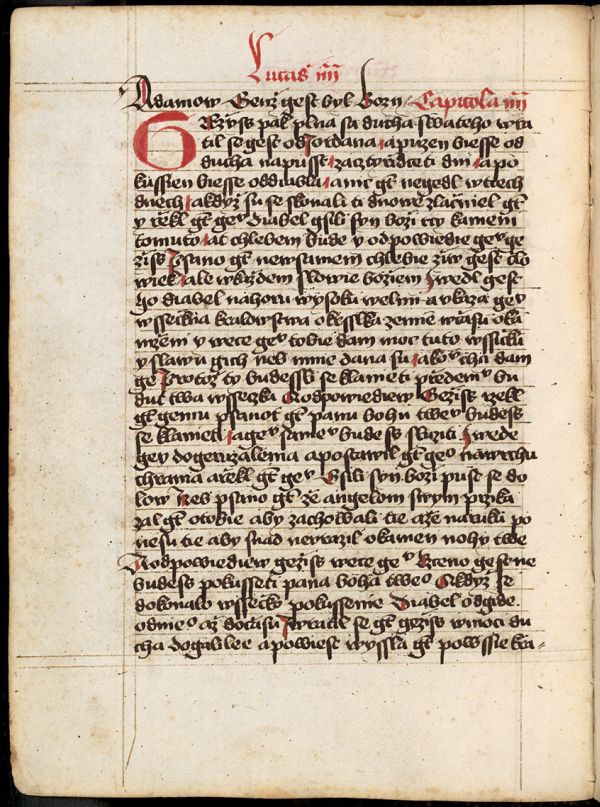 Lucas iiii
Adamow Genž gest byl Boży Capitola iiii
Gežyss pak plna sa ducha swateho wra
til se gest od Jordana a puzen biesse od
ducha na pusst za cztyrdceti dni a po
kussien biesse od diabla a nic gt negedl w tiech
dnech a kdyz su se skonali ti dnowe zlacniel gt
y rzekl gt gemu diabel gsi li syn bozi rci kameni
tomuto at chlebem bude y odpowiedie gemu ge
ziss Psano gt ne w samem chlebie ziw gest clo
wiek ale w kazdem slowie boziem J wedl gest
ho diabel na horu wysoku welmi a vkaza gemu
wssecka kralowstwa okrsslku zemie w casu oka
mzeni y wece gemu tobie dam moc tuto wssicku
y slawu gich neb mnie dana su a komuz chci dam
ge Protoz ty budessli se klaneti przedemnu bu
du twa wssecka A odpowiediew Geziss rzekl
gt gemu psanot gt panu bohu twemu budess
se klaneti a gemu samemu budess sluziti J wede
gey do geruzalema a postawil gt geho na wrchu
chrama a rzekl gt gemu Gsi li syn bozi pust se do
low neb psano gt ze angelom swym przika
zal gt o tobie aby zachowali tie a ze na ruku po
nesu tie aby snad neurazil o kamen nohy twe
A odpowiediew geziss wece gemu Rzeno gest ne
budess pokusseti pana boha tweho A kdyz se
dokonalo wssecko pokussenie Diabel odgide
od nieho az do casu J wratil se gt geziss w moci du
cha do galilee a powiest wyssla gt po wssie kra-